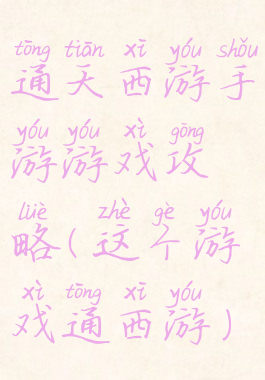 tōng tiān xī yóu shǒu
通天西游手
yóu yóu xì gōng
游游戏攻
lüè zhè gè yóu
略(这个游
xì tōng xī yóu
戏通西游)